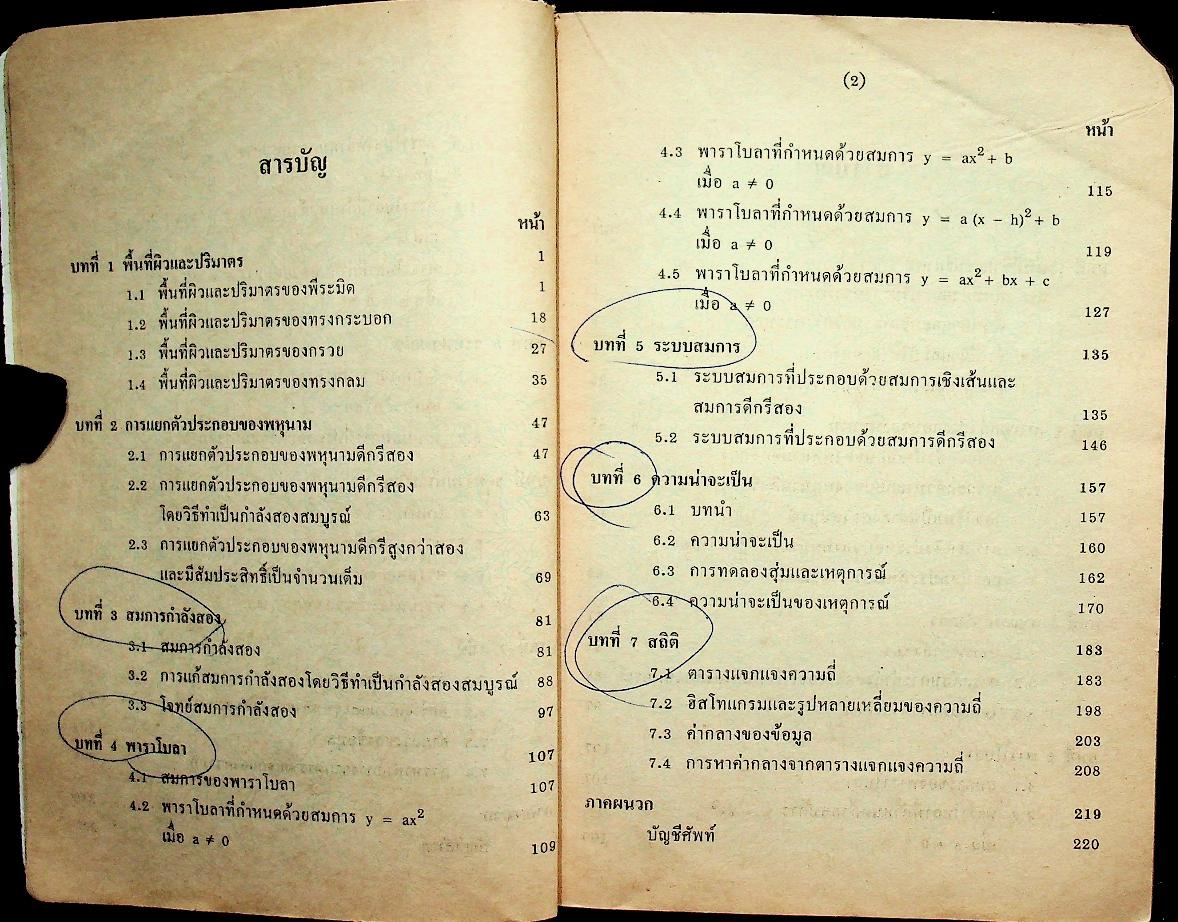 สารบัญ
หน้า
บทที่ 1 พื้นที่ผิวและปริมาตร 1
1.1 พื้นที่ผิวและปริมาตรของพีระมิด 1
1.2 พื้นที่ผิวและปริมาตรของทรงกระบอก 18
1.3 พื้นที่ผิวและปริมาตรของกรวย 27
1.4 พื้นที่ผิวและปริมาตรของทรงกลม 35
บทที่ 2 การแยกตัวประกอบของพหุนาม 47
2.1 การแยกตัวประกอบของพหุนามดีกรีสอง 47
2.2 การแยกตัวประกอบของพหุนามดีกรีสอง
โดยวิธีทำเป็นกำลังสองสมบูรณ์ 63
2.3 การแยกตัวประกอบของพหุนามดีกรีสูงกว่าสอง
และมีสัมประสิทธิ์เป็นจำนวนเต็ม 69
บทที่ 3 สมการกำลังสอง 81
3.1 สมการกำลังสอง 81
3.2 การแก้สมการกำลังสองโดยวิธีทำเป็นกำลังสองสมบูรณ์ 88
3.3 โจทย์สมการกำลังสอง 97
บทที่ 4 พาราโบลา 107
4.1 สมการของพาราโบลา 107
4.2 พาราโบลาที่กำหนดด้วยสมการ y = ax²
เมื่อ a ≠ 0 109
(2)
หน้า
4.3 พาราโบลาที่กำหนดด้วยสมการ y = ax² + b
เมื่อ a ≠ 0 115
4.4 พาราโบลาที่กำหนดด้วยสมการ y = a (x − h)² + b
เมื่อ a ≠ 0 119
4.5 พาราโบลาที่กำหนดด้วยสมการ y = ax² + bx + c
เมื่อ a ≠ 0 127
บทที่ 5 ระบบสมการ 135
5.1 ระบบสมการที่ประกอบด้วยสมการเชิงเส้นและ
สมการดีกรีสอง 135
5.2 ระบบสมการที่ประกอบด้วยสมการดีกรีสอง 146
บทที่ 6 ความน่าจะเป็น 157
6.1 บทนำ 157
6.2 ความน่าจะเป็น 160
6.3 การทดลองสุ่มและเหตุการณ์ 162
6.4 ความน่าจะเป็นของเหตุการณ์ 170
บทที่ 7 สถิติ 183
7.1 ตารางแจกแจงความถี่ 183
7.2 ฮิสโทแกรมและรูปหลายเหลี่ยมของความถี่ 198
7.3 ค่ากลางของข้อมูล 203
7.4 การหาค่ากลางจากตารางแจกแจงความถี่ 208
ภาคผนวก 219
บัญชีศัพท์ 220